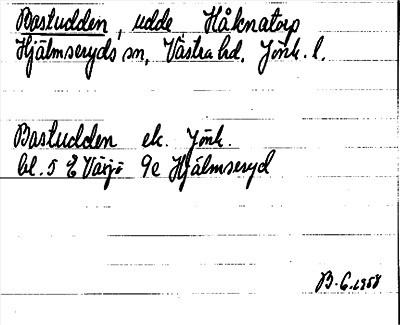 Bastudden, udde, Håknatorp
Hjälmseryds sn, Västra hd. Jönk. l.
Bastudden ek. Jönk.
bl. 5 E Växjö 9c Hjälmseryd
B. G. 1958